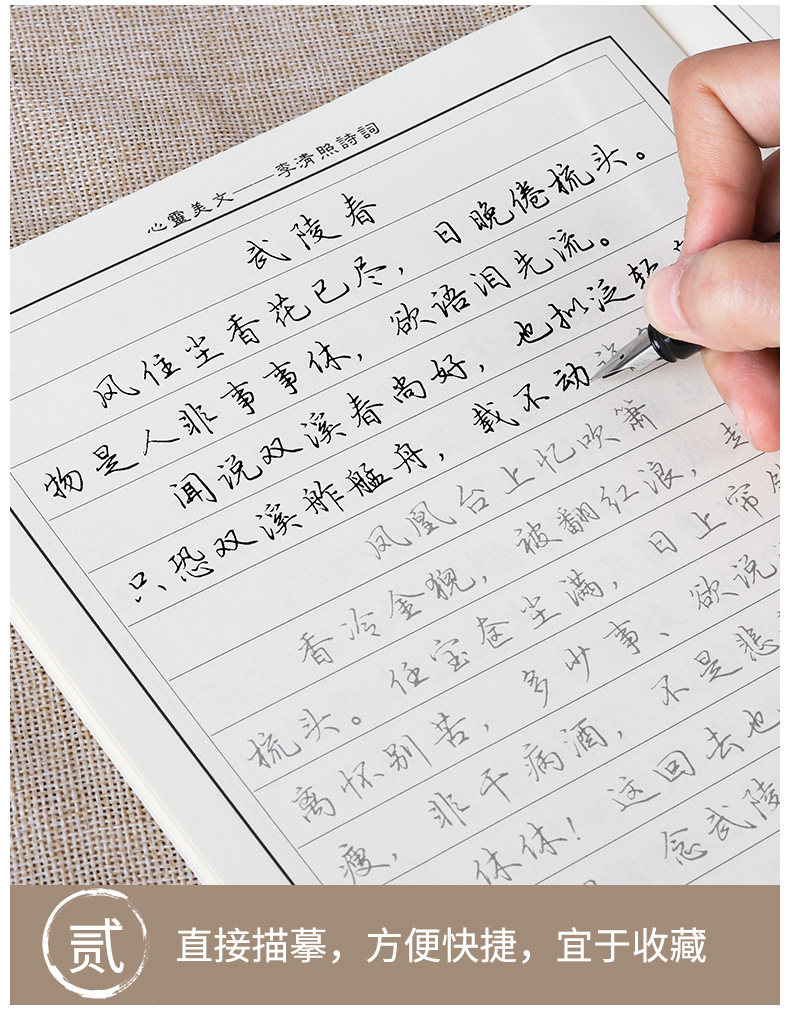 心靈美文——李清照詩詞
武陵春
风住尘香花已尽，日晚倦梳头。
物是人非事事休，欲语泪先流。
闻说双溪春尚好，也拟泛轻
只恐双溪舴艋舟，载不动
凤凰台上忆吹箫
香冷金猊，被翻红浪，起
梳头。任宝奁尘满，日上帘
离怀别苦，多少事、欲说
瘦，非干病酒，不是悲
休休！这回去也
念武陵
贰
直接描摹，方便快捷，宜于收藏